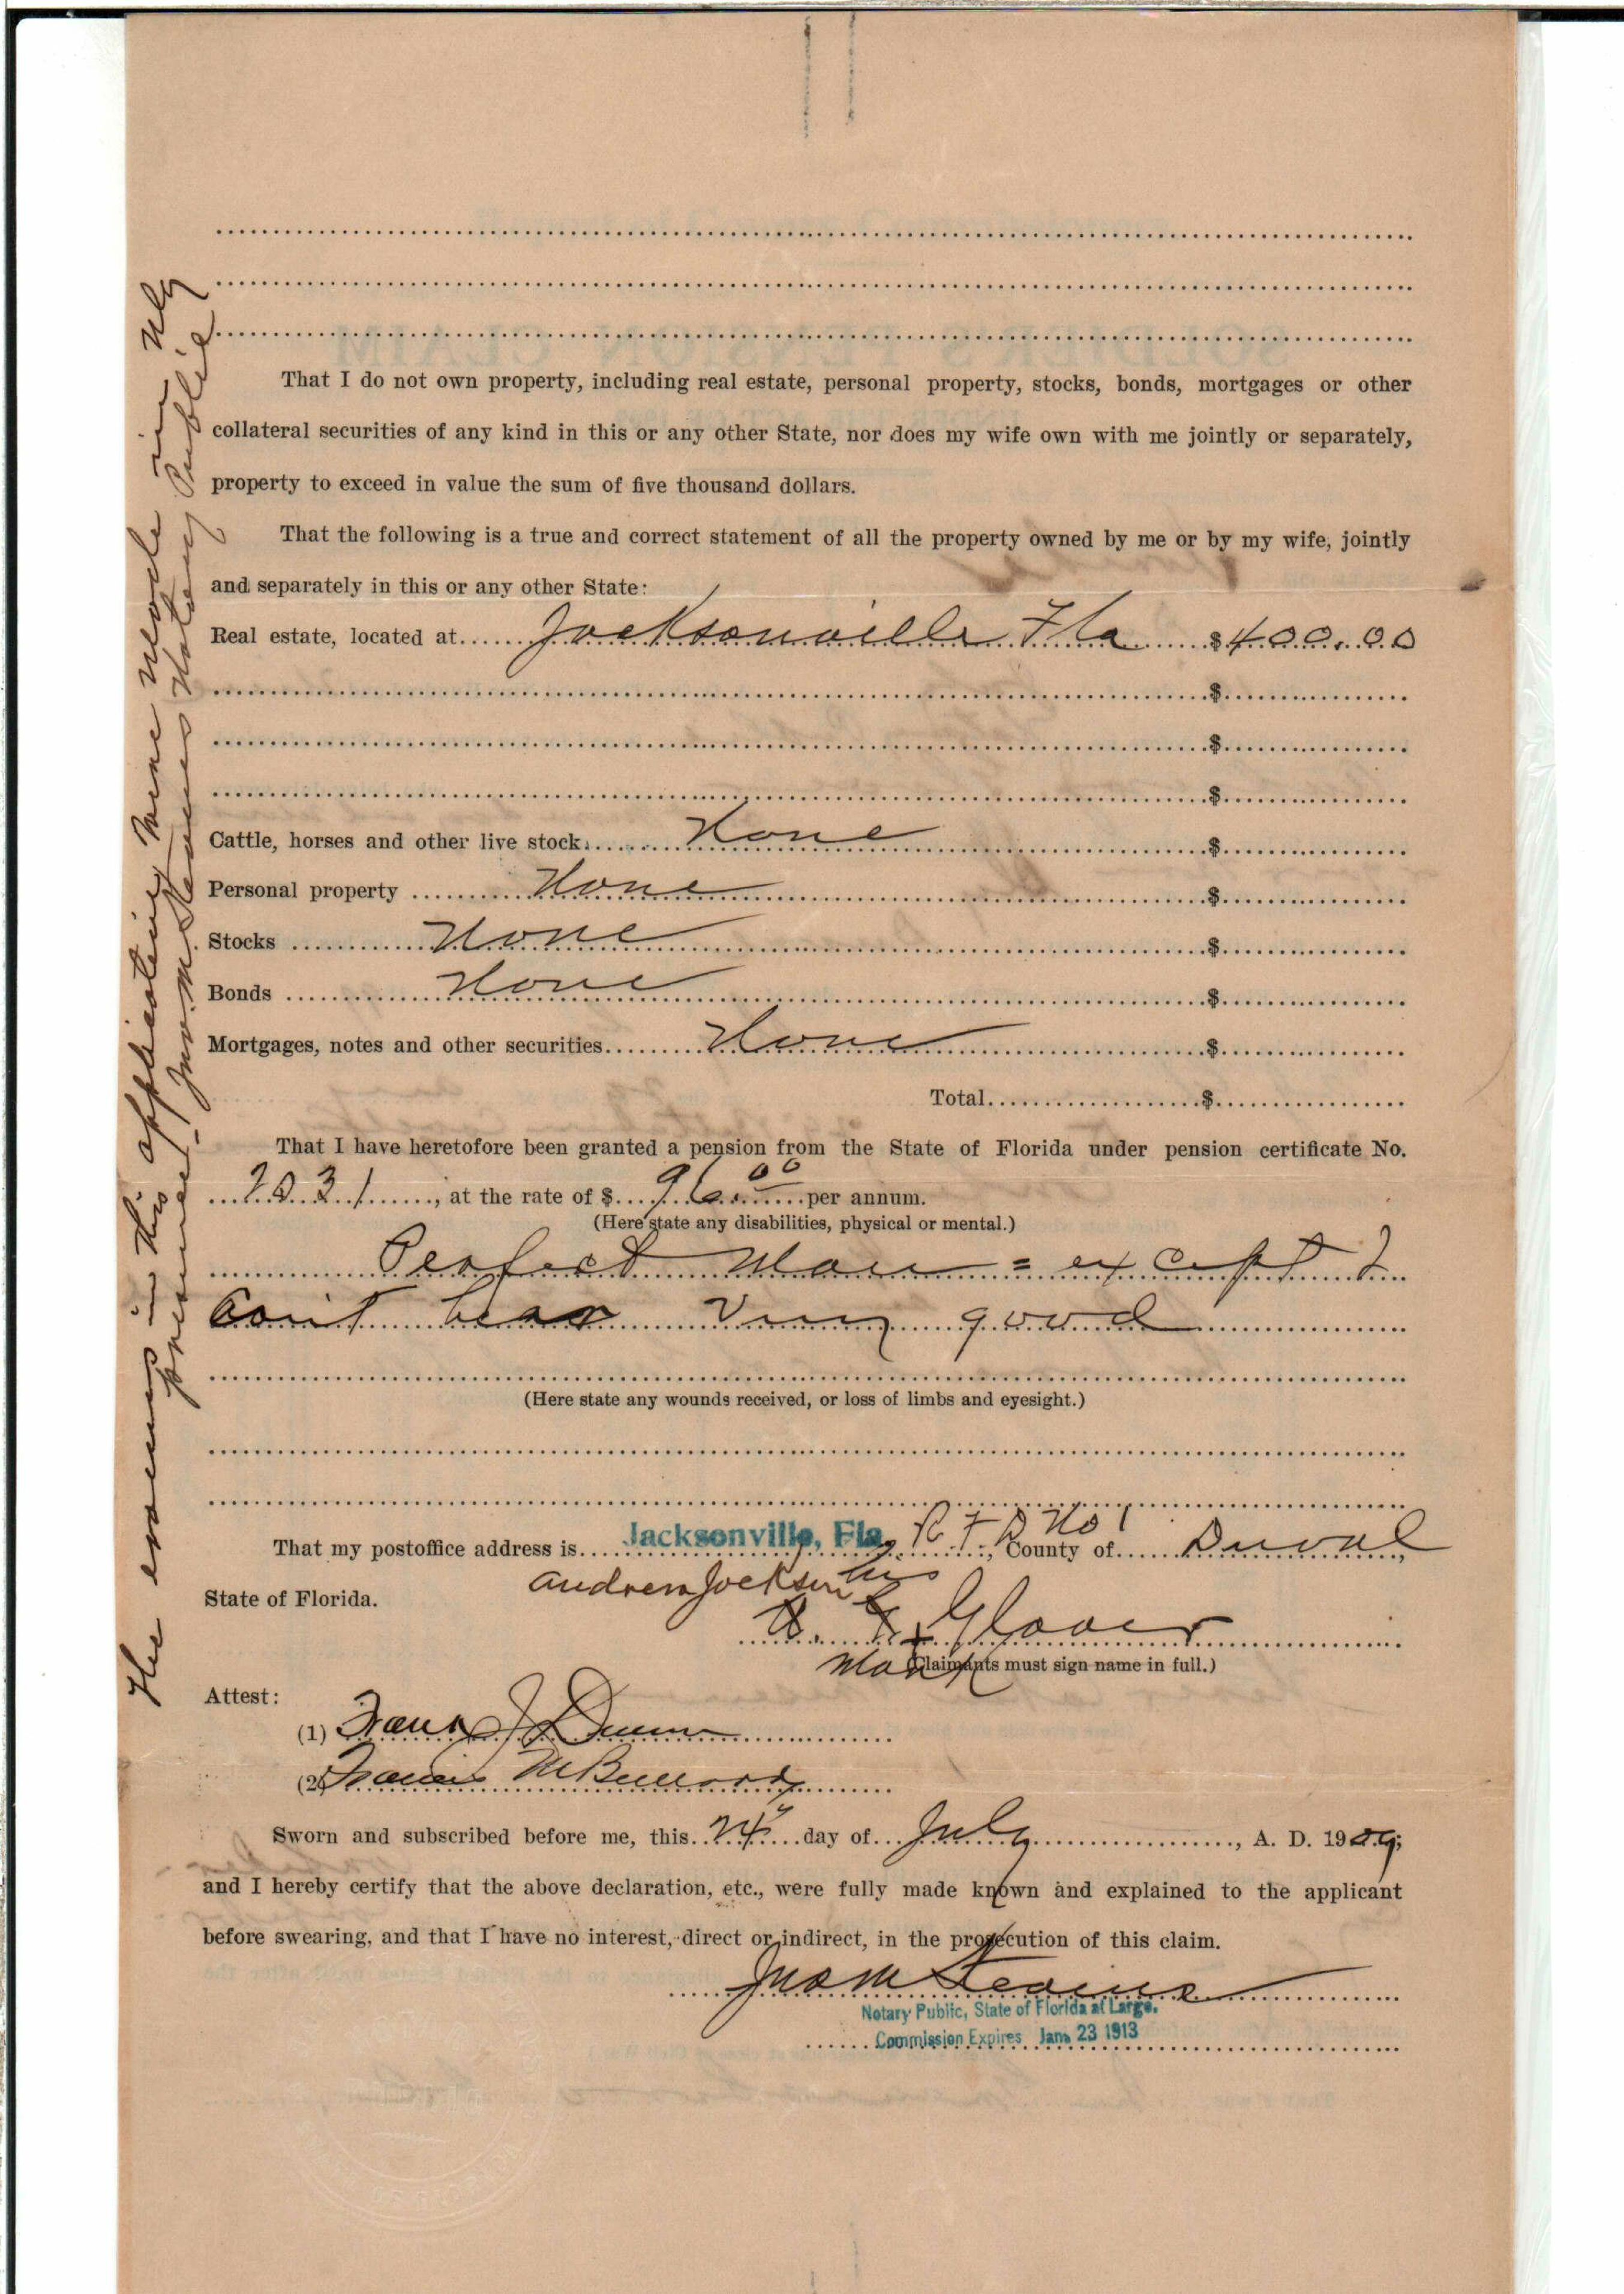 That I do not own property, including real estate, personal property, stocks, bonds, mortgages or other
collateral securities of any kind in this or any other State, nor does my wife own with me jointly or separately,
property to exceed in value the sum of five thousand dollars.
That the following is a true and correct statement of all the property owned by me or by my wife, jointly
and separately in this or any other State:
Real estate, located at Jacksonville Fla $400.00
$
$
$
Cattle, horses and other live stock. None $
Personal property None $
Stocks None $
Bonds None $
Mortgages, notes and other securities None $
Total $
That I have heretofore been granted a pension from the State of Florida under pension certificate No.
2031, at the rate of $ 96.00 per annum.
(Here state any disabilities, physical or mental.)
Perfect Man = except I
Cant hear very good
(Here state any wounds received, or loss of limbs and eyesight.)
That my postoffice address is Jacksonville, Fla. R F D No 1, County of Duval,
State of Florida.
Andrew Jackson his
Glover
mark
(Claimants must sign name in full.)
Attest:
(1) Frank J Dunn
(2) Francis M Bullard
Sworn and subscribed before me, this 24 day of July, A. D. 1909;
and I hereby certify that the above declaration, etc., were fully made known and explained to the applicant
before swearing, and that I have no interest, direct or indirect, in the prosecution of this claim.
Jno M
Notary Public, State of Florida at Large.
Commission Expires Jan. 23 1913
The erasures in this application were made in my
presence - Jno. M. Notary Public